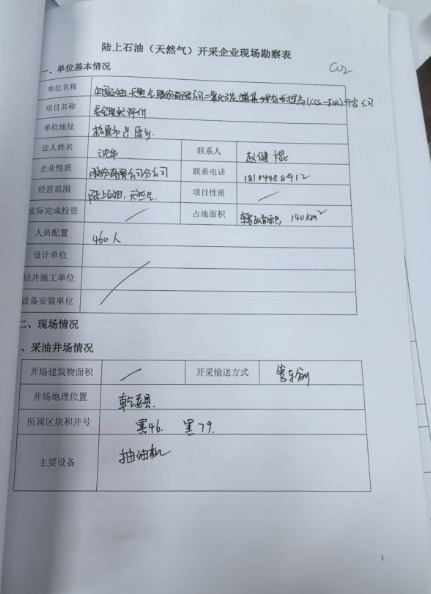 陆上石油（天然气）开采企业现场勘察表
CO2
一、单位基本情况
单位名称 中国石油天然气股份有限公司二氧化碳捕集埋存与提高(CCS-EOR)开发公司
项目名称 安全现状评价
单位地址
法人姓名 沈华 联系人 赵健
企业性质 股份有限公司分公司 联系电话
经营范围 陆上石油、天然气 项目性质 /
实际完成投资 / 占地面积 140km²
人员配置 460人
设计单位
钻井施工单位 /
设备安装单位
二、现场情况
、采油井场情况
井场建筑物面积 / 开采输送方式 管输
井场地理位置 乾安县
所属区块和井号 黑46、黑79
主要设备 抽油机
1